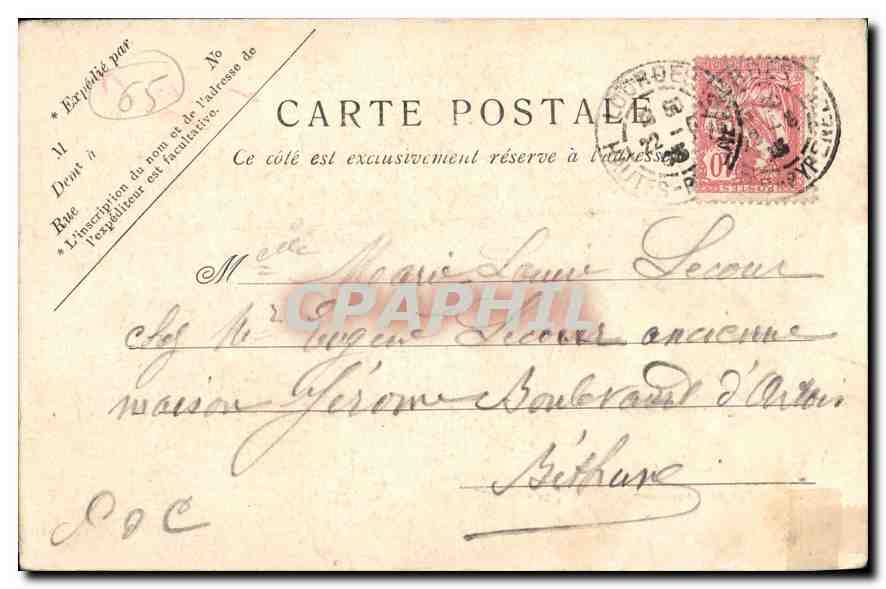 * Expédié par
65
No
M
Demt à
Rue
* L'inscription du nom et de l'adresse de
l'expéditeur est facultative.
CARTE POSTALE
Ce côté est exclusivement réservé à l'adresse
LOURDES
HAUTES-PYRENEES
10
POSTES
Melle Marie Louise Lecour
chez Mr Eugène Lecour ancienne
maison Jérome Boulevard d'Artois
Béthune
CPAPHIL